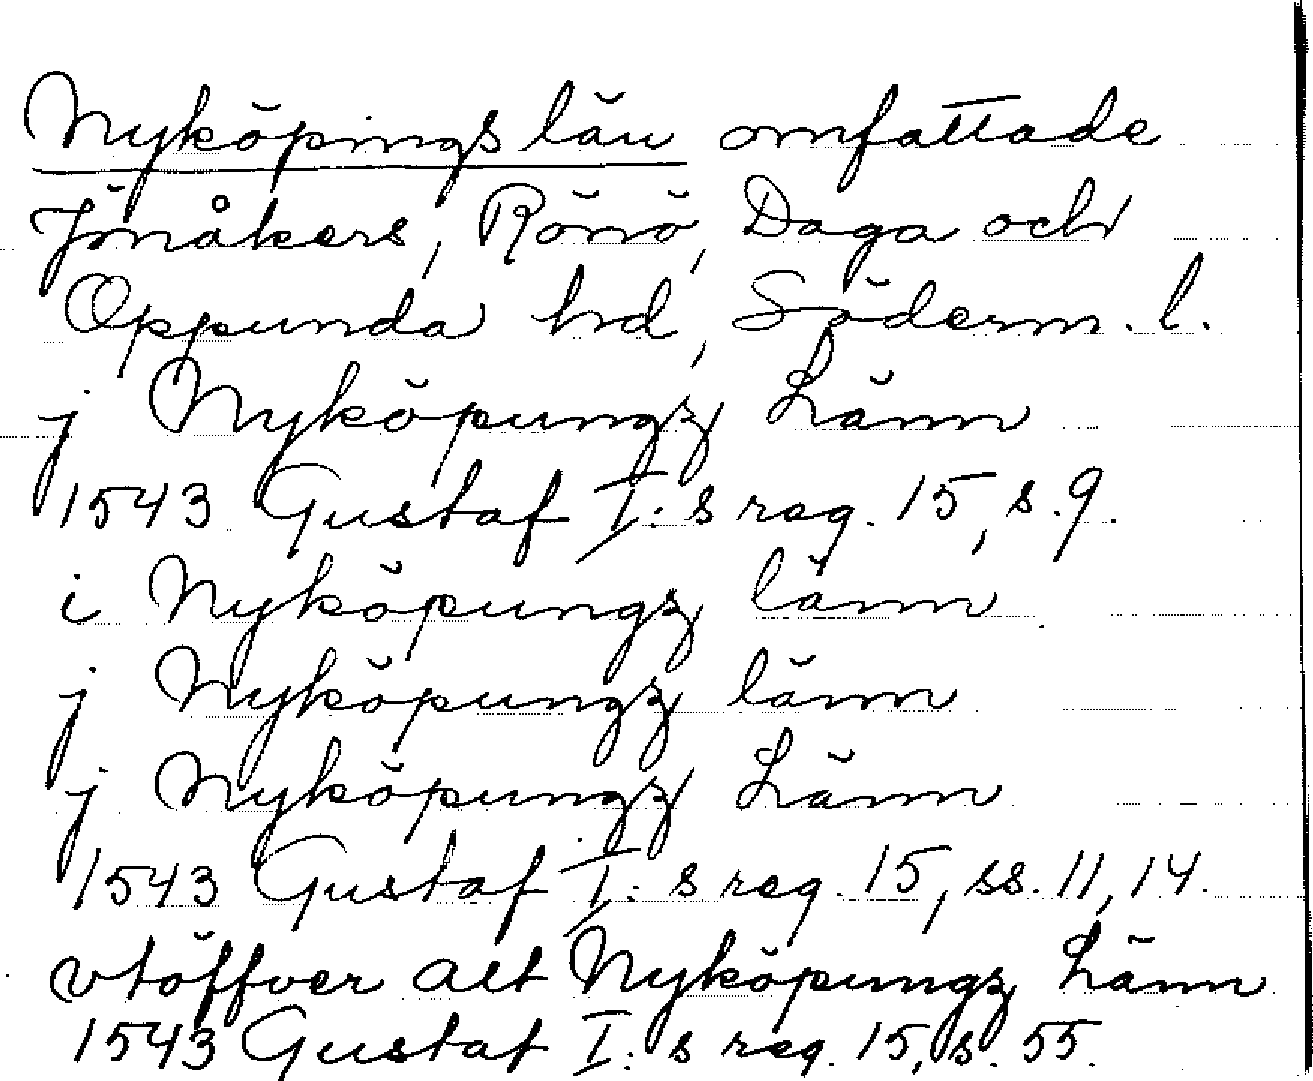 Nyköpings län omfattade
Jönåkers, Rönö, Daga och
Oppunda hd, Söderm. l.
j Nyköpungz Länn
1543 Gustaf I:s reg. 15, s. 9.
i Nyköpungz länn
j Nyköpungz länn
j Nyköpungz Länn
1543 Gustaf I:s reg. 15, ss. 11, 14.
vtöffver alt Nyköpungz Länn
1543 Gustaf I:s reg. 15, s. 55.